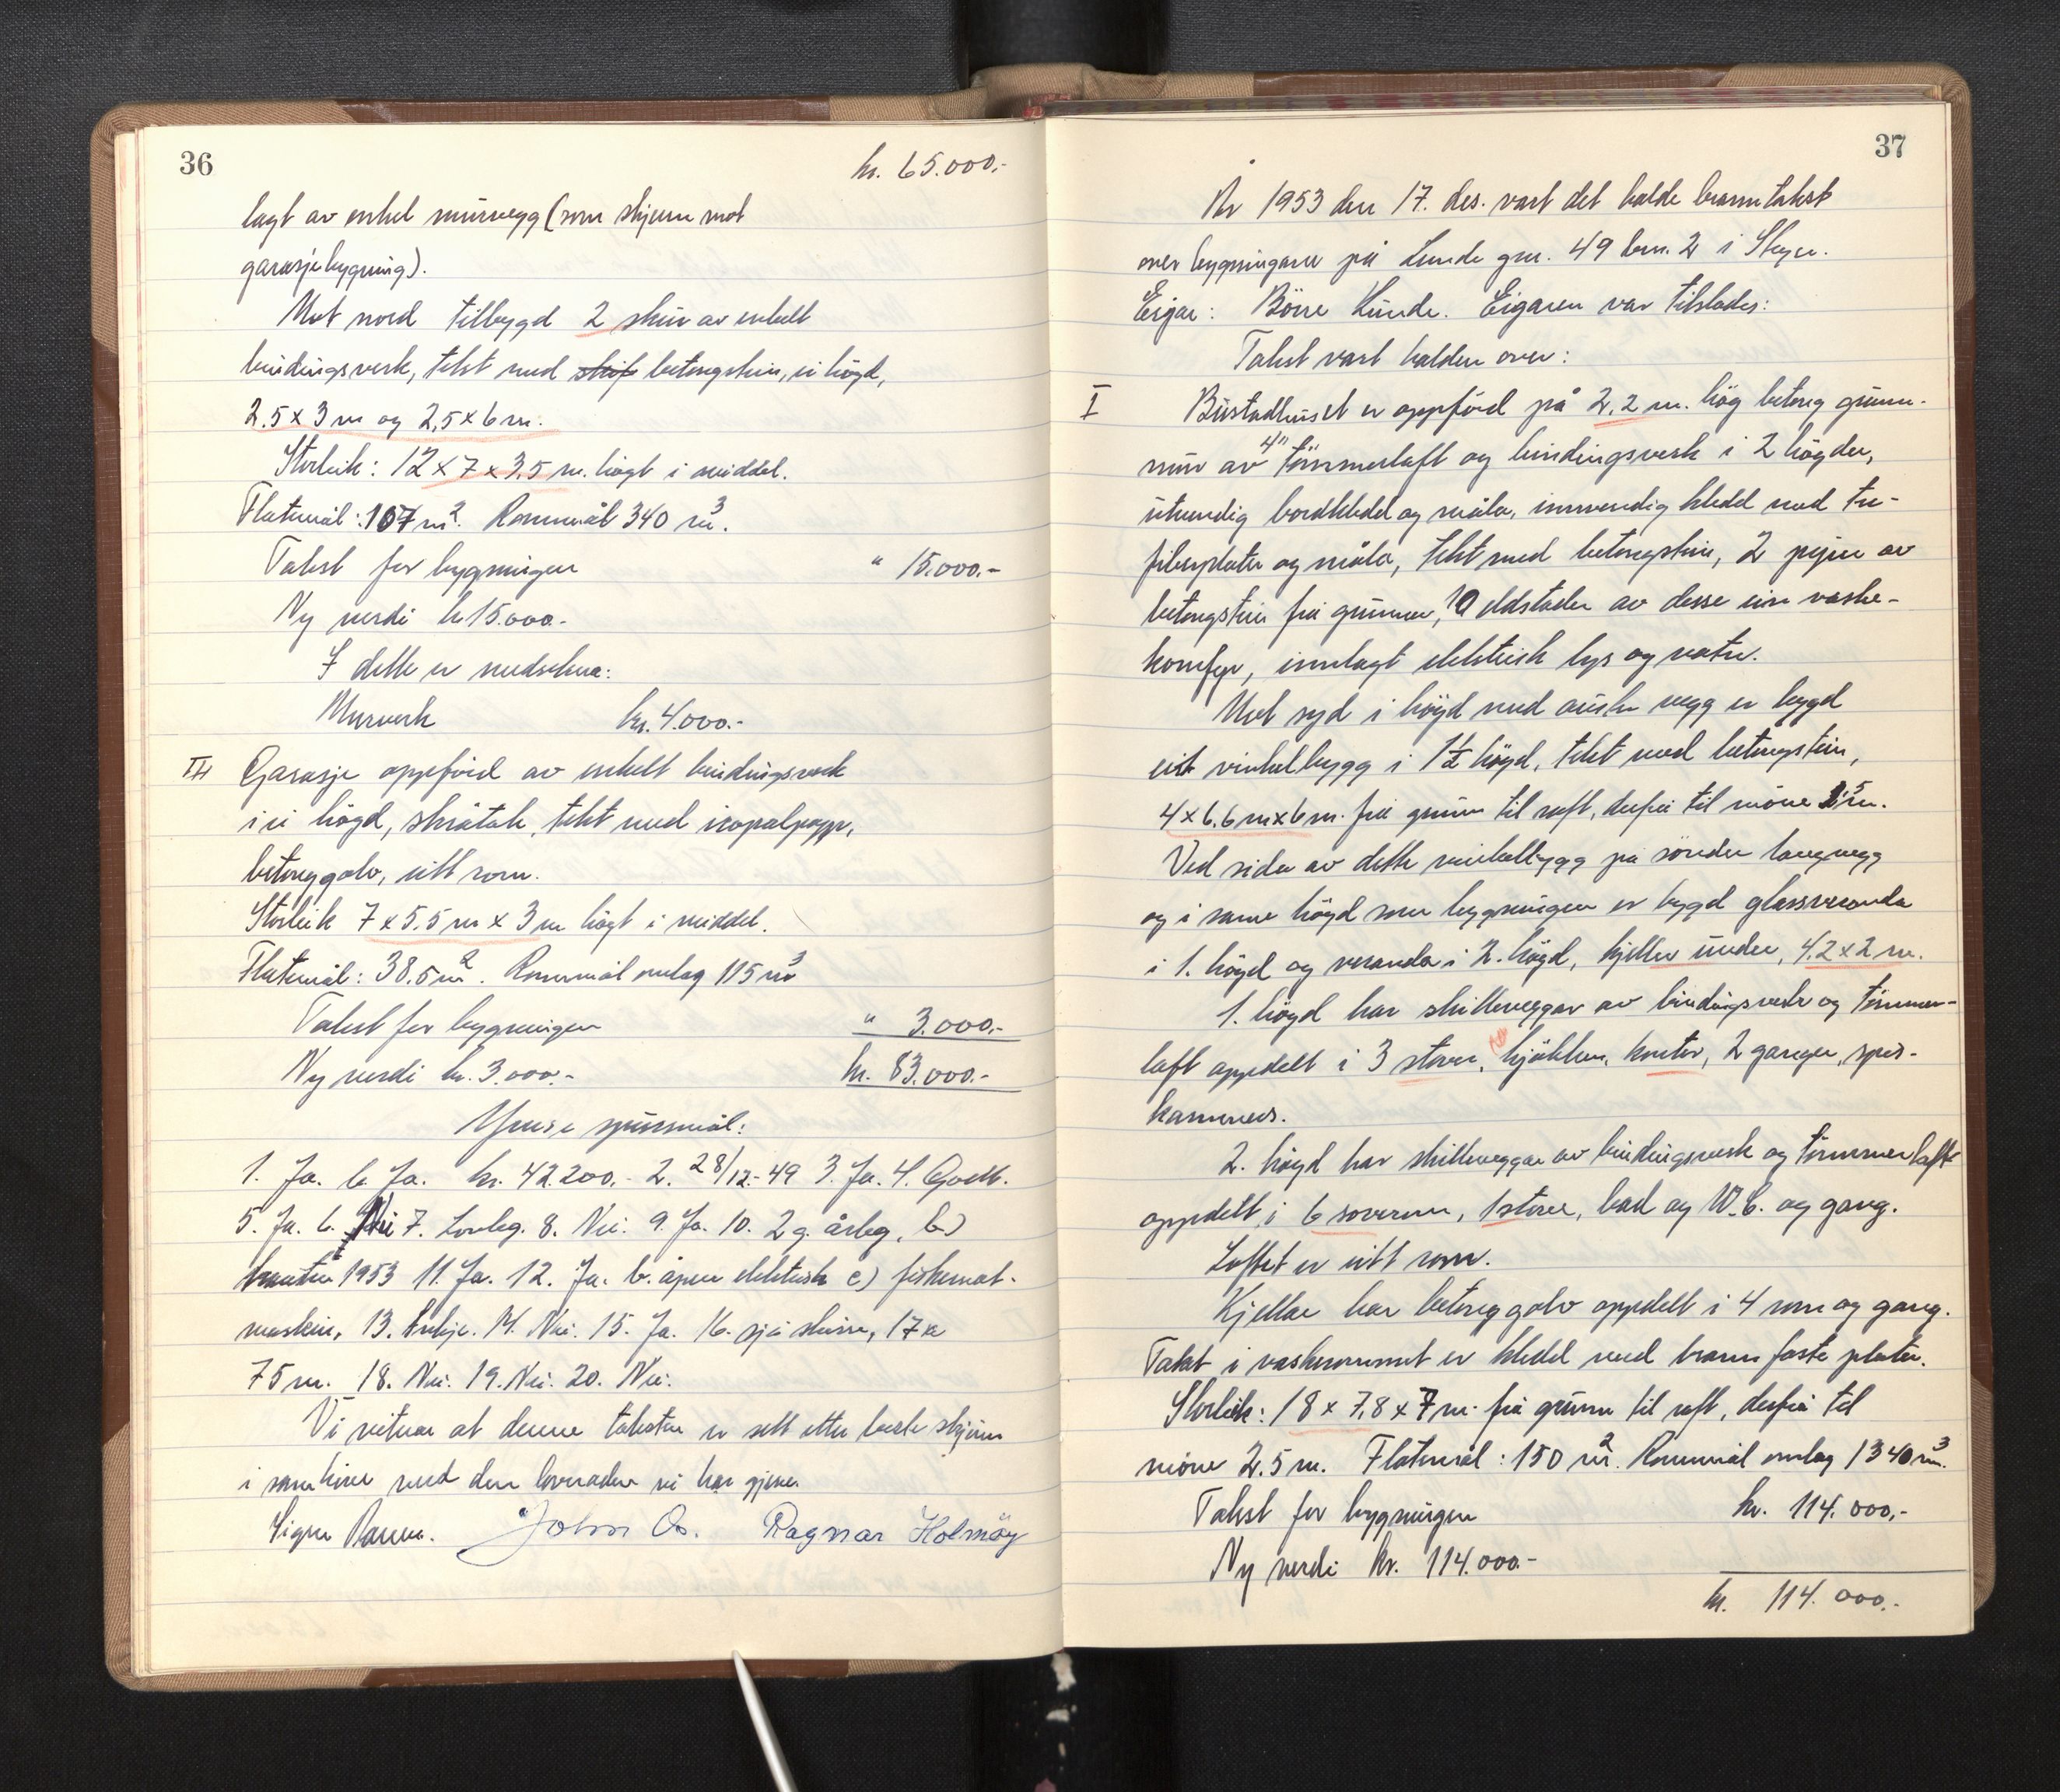 36
kr. 65.000.-
lagt av enkel murvegg (som skjerm mot
garasjebygning).
Mot nord tilbygd 2 skur av enkelt
bindingsverk, tekt med skif betongstein, ei högd,
2.5 x 3 m og 2,5 x 6 m.
Storleik: 12 x 7 x 3,5 m. högt i middel.
Flatemål: 107 m². Rommål 340 m³.
Takst for bygningen " 15.000.-
Ny verdi kr 15.000.-
I dette er medrekna:
Murverk kr. 4.000.-
III Garasje oppförd av enkelt bindingsverk
i ei högd, skråtak, tekt med icopalpapp,
betonggolv, eitt rom.
Storleik 7 x 5.5 m x 3 m högt i middel.
Flatemål: 38.5 m². Rommål omlag 115 m³
Takst for bygningen " 3.000.-
Ny verdi kr. 3.000.- kr. 83.000.-
Ymse spursmål:
1. Ja. b. Ja. kr. 42.200.- 2. 28/12.-49 3. Ja. 4. Godt.
5. Ja. 6. Nei 7. Lovleg. 8. Nei. 9. Ja. 10. 2 g. årleg, b)
hausten 1953 11. Ja. 12. Ja. b. åpen elektrisk c) fiskemat-
maskin, 13. 14. Nei. 15. Ja. 16. sjå skissa, 17 a
75 m. 18. Nei. 19. Nei. 20. Nei.
Vi vitnar at denne taksten er sett etter beste skjönn
i samhöve med den lovnaden vi har gjeve.
John O. Ragnar Holmöy
37
År 1953 den 17. des. vart det halde branntakst
over bygningane på Lunde gnr. 49 bnr. 2 i Stryn.
Eigar: Börre Lunde. Eigaren var tilstades:
Takst vart halden over:
I Bustadhuset er oppförd på 2,2 m. hög betong grunn-
mur av 4" tömmerlaft og bindingsverk i 2 högder,
utvendig bordkledd og måla, innvendig kledd med tre-
fiberplater og måla, tekt med betongstein, 2 pipor av
betongstein frå grunnen, 10 eldstader av desse ein vaske-
komfyr, innlagt elektrisk lys og vatn.
Mot syd i höyd med austre vegg er bygd
eit vinkelbygg i 1½ höyd, tekt med betongstein,
4 x 6.6 m x 6 m. frå grunn til raft, derfrå til möne 3,5 m.
Ved sida av dette vinkelbygg på söndre langvegg
og i same högd som bygningen er bygd glassveranda
i 1. högd og veranda i 2. högd, kjeller under, 4.2 x 2 m.
1. högd har skilleveggar av bindingsverk og tömmer-
laft oppdelt i 3 stover, kjökken, kontor, 2 ganger, spis-
kammers.
2. högd har skilleveggar av bindingsverk og tömmerlaft
oppdelt i 6 soverom, 1 stove, bad og W.C. og gang.
Loftet er eitt rom.
Kjellar har betonggolv oppdelt i 4 rom og gang.
Taket i vaskerommet er kledd med brannfaste plater.
Storleik: 18 x 7,8 x 7 m. frå grunn til raft, derfrå til
möne 2.5 m. Flatemål: 150 m². Rommål omlag 1340 m³.
Takst for bygningen kr. 114.000,-
Ny verdi kr. 114.000.-
kr. 114.000.-